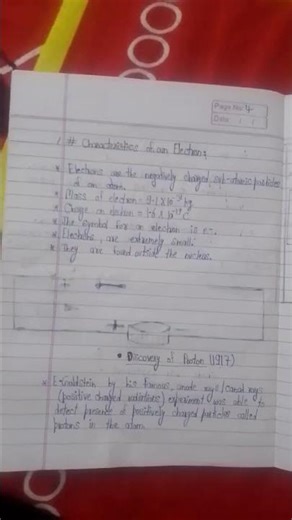 Page No: 4
Date: / /
# Characteristics of an Electron:
* Electrons are the negatively charged sub-atomic particles
of an atom.
* Mass of electron: 9.1 X 10⁻³¹ kg
* Charge on electron: 1.6 X 10⁻¹⁹ C
* The symbol for an electron is e⁻.
* Electrons are extremely small.
* They are found outside the nucleus.
+
+
• Discovery of Proton (1917)
* E. Goldstein by his famous anode rays/canal rays
(positive charged radiations) experiment was able to
detect presence of positively charged particles called
protons in the atom.